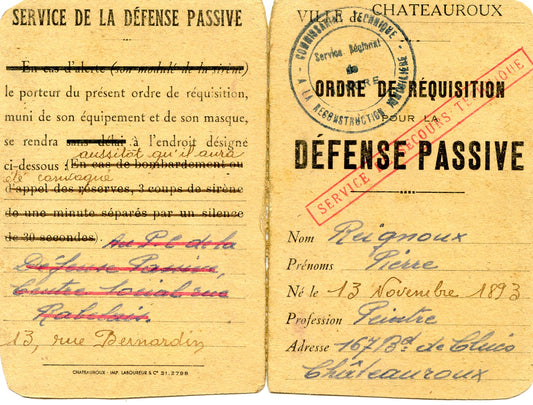 SERVICE DE LA DÉFENSE PASSIVE
En cas d'alerte (son modulé de la sirène)
le porteur du présent ordre de réquisition,
muni de son équipement et de son masque,
se rendra sans délai à l'endroit désigné
aussitôt qu'il aura
ci-dessous : (En cas de bombardement ou
été convoqué
d'appel des réserves, 3 coups de sirène
de une minute séparés par un silence
de 30 secondes).
Au P.C. de la
Défense Passive,
Centre Social rue
Rabelais.
13, rue Bernardin
CHATEAUROUX - IMP. LABOUREUR & Cⁱᵉ 31.2798
VILLE DE CHATEAUROUX
COMMISSARIAT TECHNIQUE
A LA RECONSTRUCTION IMMOBILIÈRE
Service Régional
de
ORDRE DE RÉQUISITION
POUR LA
DÉFENSE PASSIVE
SERVICE DE SECOURS TECHNIQUE
Nom Reignoux
Prénoms Pierre
Né le 13 Novembre 1893
Profession Peintre
Adresse 167 Bd de Cluis
Châteauroux